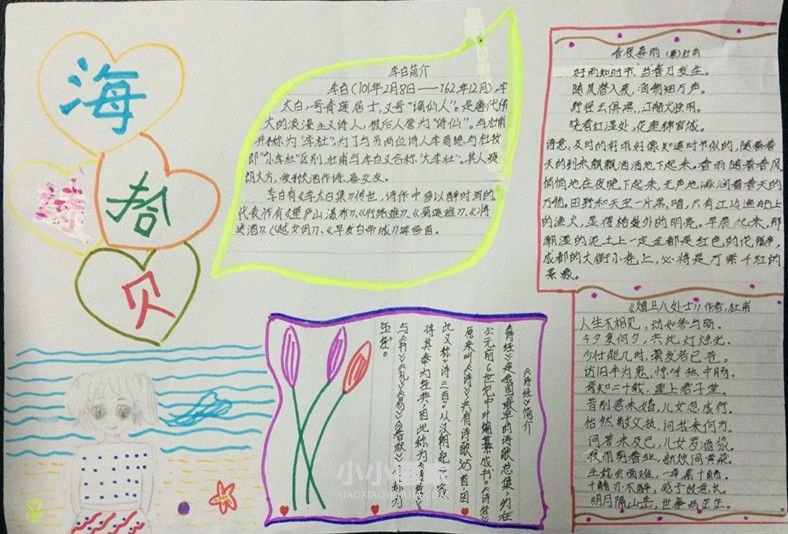 海
诗
拾
贝
李白简介
李白(701年2月8日——762年12月),字
太白,号青莲居士,又号“谪仙人”。是唐代伟
大的浪漫主义诗人,被后人誉为“诗仙”。与杜甫
并称为“李杜”,为了与另两位诗人李商隐与杜牧
即“小李杜”区别,杜甫与李白又合称“大李杜”。其人
大方,饮酒作诗,喜交友。
李白有《李太白集》传世,诗作中多以醉时写的
代表作有《望庐山瀑布》、《行路难》、《蜀道难》、《将
进酒》、《越女词》、《早发白帝城》等多首。
春夜喜雨 (唐)杜甫
好雨知时节,当春乃发生。
随风潜入夜,润物细无声。
野径云俱黑,江船火独明。
晓看红湿处,花重锦官城。
诗意:及时的好雨好像知道时节似的,随着春
天的到来飘飘洒洒地下起来。春雨随着春风
悄悄地在夜晚下起来,无声地滋润着春天的
万物。田野和天空一片黑暗,只有江边渔船上
的渔火,显得格外的明亮。早晨起来,那
潮湿的泥土上一定全都是红色的花瓣,
成都的大街小巷上,必将是万紫千红的
景象。
《赠卫八处士》作者:杜甫
人生不相见,动如参与商。
今夕复何夕,共此灯烛光。
少壮能几时,鬓发各已苍。
访旧半为鬼,惊呼热中肠。
焉知二十载,重上君子堂。
昔别君未婚,儿女忽成行。
怡然敬父执,问我来何方。
问答未及已,儿女罗酒浆。
夜雨剪春韭,新炊间黄粱。
主称会面难,一举累十觞。
十觞亦不醉,感子故意长。
明日隔山岳,世事两茫茫。
《诗经》简介
《诗经》是我国最早的诗歌总集,约在
公元前6世纪中叶编纂成书。《诗经》
原来叫《诗》,共有诗歌305首,因
此又称“诗三百”。从汉朝起
将其奉为经典,因此称为《诗经》
与《书》《礼》《易》《春秋》
五经。
XIAOXIAOHUAJIA.COM